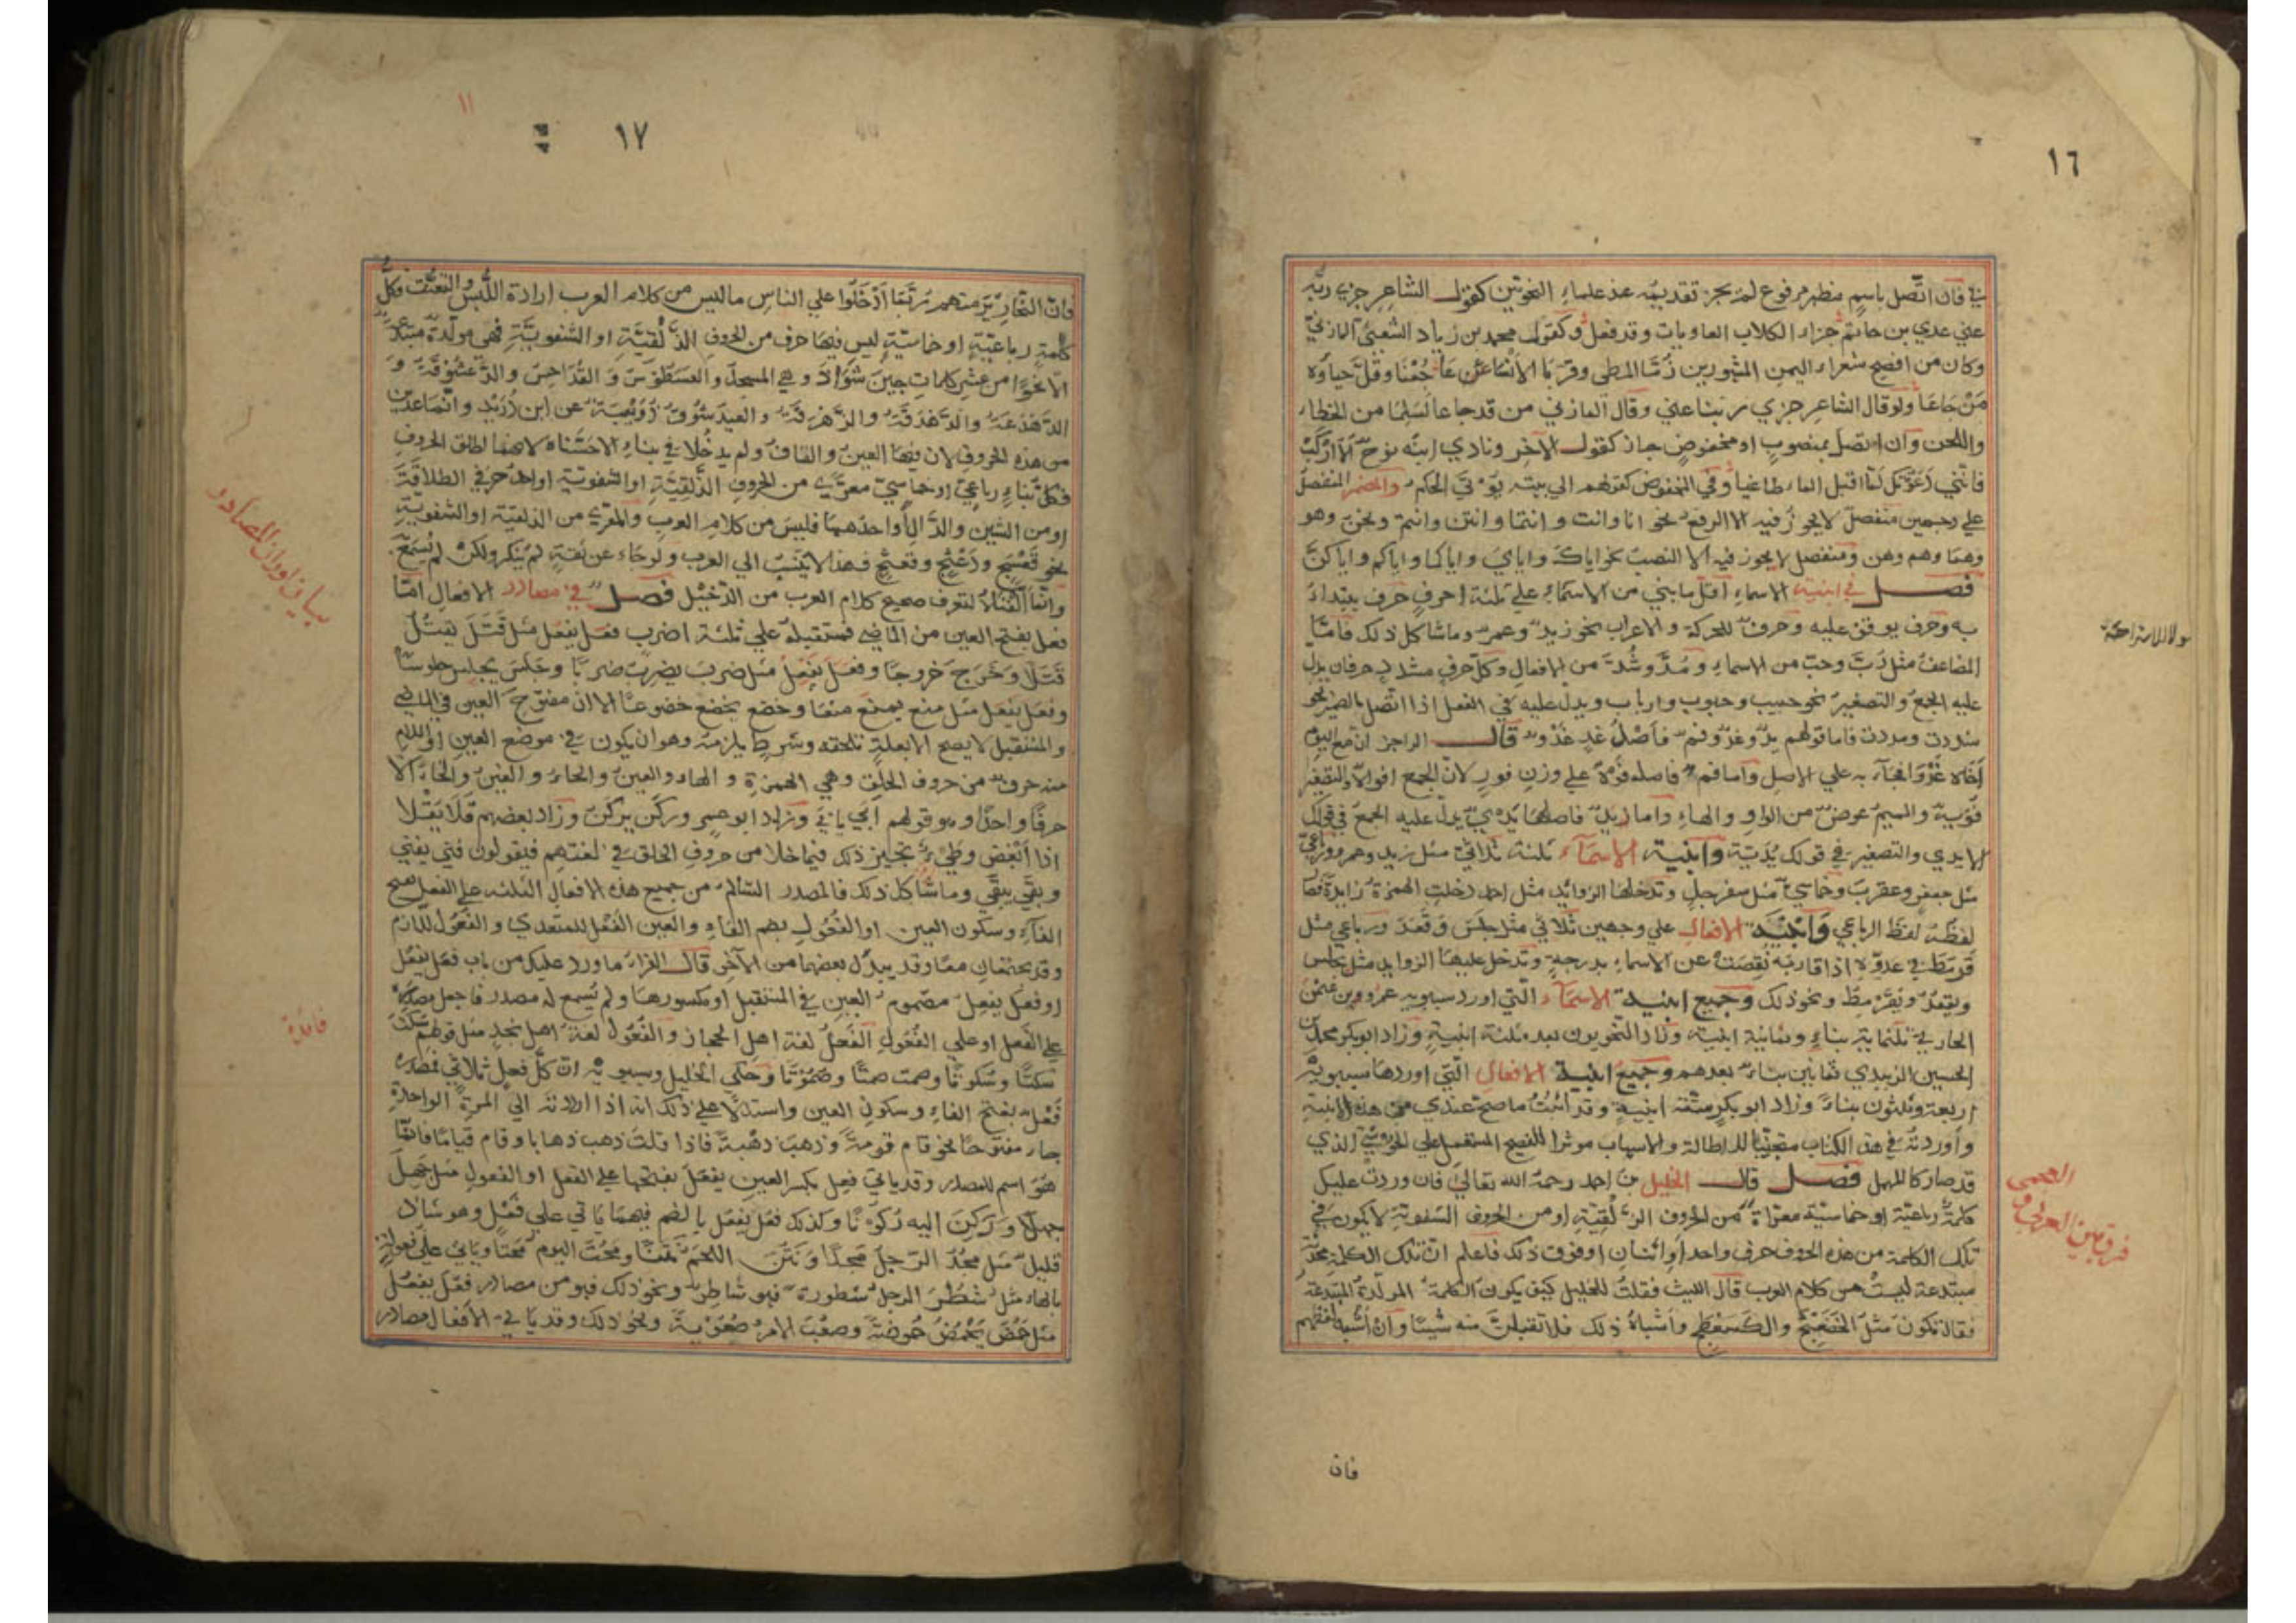 ١٦
في فان اتّصل باسمٍ مظهر مرفوع لم يجز تقديمه عند علماء النحويّين كقول الشاعر جزي ربّه
عني عدي بن حاتم جزاء الكلاب العاويات وقد فعل وكقول محمد بن زياد المازنيّ
وكان من افصح شعراء اليمن المشهورين
ولو قال الشاعر جزي ربنا عني وقال المازني من قد جاعا لسلما من الخطاء
واللحن وان اتصل بمنصوبٍ او مخفوضٍ جاز كقول الآخر ونادي ابنه نوحٌ الا اركبْ
فانّني دعوتكَ لمّا اقبل الماء طاغيا وفي المخفوض كقولهم الي بيته يؤتي الحكم والمضمر المنفصل
علي وجهين منفصلٌ لا يجوز فيه الا الرفع نحو انا وانت وانتما وانتن وانتم ونحن وهو
وهما وهم وهن ومنفصل لا يجوز فيه الا النصب نحو اياك واياي واياكما واياكم واياكنّ
فصل في ابنية الاسماء اقل ما بني من الاسماء علي ثلثة احرفٍ حرف يبتداء
به وحرف يوقف عليه وحرفٌ للحركة والاعراب نحو زيد وعمرو وما شاكل ذلك فامّا
المضاعف مثل رُبّ وحبّ من الاسماء ومُدّ وشُدّ من الافعال وكلّ حرفٍ مشدد حرفان يدل
عليه الجمع والتصغير نحو حبيب وحبوب وارباب ويدل عليه في الفعل اذا اتّصل بالضمير نحو
شددت ومددت فاما قولهم يدٌ وغدٌ وفمٌ فاَصْلُ غدٍ غَدْوٌ قال الراجز انّ مع اليوم
اخاه غَدْوَا فجآء به علي الاصل وامّا فم فاصله فَوْهٌ علي وزن فوزٍ لانّ الجمع افواهٌ والتصغير
فُوَيْهٌ والميم عوضٌ من الواو والهاء واما يدٌ فاصلها يَدْيٌ يدل عليه الجمع في قولك
الايدي والتصغير في قولك يُديّة وابنية الاسمآء ثلثة ثلاثيٌّ مثل زيد وعمرو ورباعيٌّ
مثل جعفرٍ وعقربٍ وخماسيٌّ مثل سفرجلٍ وتدخلها الزوائد مثل احمد دخلت الهمزة زايدة فصار
لفظه لفظ الرباعي وابنية الافعال علي وجهين ثلاثي مثل جلَسَ وقَعَدَ ورباعي مثل
قرمَطَ في عدوه اذا قارَبَه نقصت عن الاسماء بدرجةٍ وتدخل عليها الزوايد مثل يجلس
ويقعدُ ويُقَرْمِطُ ونحو ذلك وجميع ابنية الاسمآء الّتي اورد سيبويه عمرو بن عثمن
الحارثي ثلثماية بناءٍ وثمانية ابنية وزاد النّحويون بعده ثلثة ابنيةٍ وزاد ابو بكر محمد بن
الحسين الزبيدي ثمانين بناءً بعدهم وجميع ابنية الافعال الّتي اوردها سيبويه
اربعة وثلثون بناءً وزاد ابو بكر ستّة ابنيةٍ وقد اثبتّ ما صحّ عندي من هذه الابنية
واوردته في هذا الكتاب متجنّبًا للاطالة والاسهاب موثرا للفصيح المستعمل علي الحوشيّ الذي
قد صار كالمهمل فصل قال الخليل بن احمد رحمه الله تعالي فان وردت عليك
كلمةٌ رباعيّة او خماسيّة معرّاةٌ من الحروف الذّلْقِيّةِ او من الحروف الشفويّة لا يكون في
تلك الكلمة من هذه الحروف حرف واحد اَو اثنان او فوق ذلك فاعلم انّ تلك الكلمة محدثة
مبتدعة ليست من كلام العرب قال الليث فقلتُ للخليل كيف يكون الكلمة المولّدة المبتدعة
فقال تكون مثل الخَضَعْثَجِ والكَسَعْطَجِ واشباه ذلك فلا تقبلنّ منه شيئًا وان اشبه لفظهم
فان
فرق بين العربي و
العجمي
١٧
١١
فانّ النّحارير منهم رُبّمَا اَدْخَلُوا علي الناس ما ليس من كلام العرب ارادة اللّبس والتعنّت فكلّ
كلمةٍ رباعيّةٍ او خماسيّةٍ ليس فيها حرف من الحروف الذّلْقيّةِ او الشفويّةِ فهي مولّدة مبتدعة
الّا نحوًا من عشر كلماتٍ جِئنَ شوَاذّ وهي العسجدُ والعَسَطُوسُ والقُدَاحِسُ والدُّعْشُوقَةُ و
الدَّهْدَعَةُ والدّهْدَقَةُ والزّهْزَقَةُ عن ابن دُرَيْدٍ وانّما عددن
من هذه الحروف لان فيها العين والقاف ولم يدخُلا في بناءٍ الا حَسّناه لانهما اطلق الحروف
فكلّ بناءٍ رباعيّ او خماسيّ معرّي من الحروف الذّلْقِيّةِ او الشفويّة
او من السّين والدّال او احدهما فليس من كلام العرب والمعرّي من الذلقيّة او الشفويّة
نحو قَعْثَجٍ ودَعْثَجٍ فهذا لا يُنْسَبُ الي العرب ولو جاء عن ثقةٍ لم يُنْكَر ولكنْ لم يُسْمَعْ
وانّما الّفناه لتعرف صحيح كلام العرب من الدّخيل فصل في مصادر الافعال امّا
فعل بفتح العين من الماضي فمستقبله علي ثلثة اضرب فعَل يفعُل مثل قَتَلَ يقتُلُ
قَتْلًا وخَرَجَ خروجًا وفعَل يفعِلُ مثل ضربَ يضربُ ضربًا وجَلسَ يجلِس جلوسًا
وفعَل يفعَل مثل منع يمنع منعًا وخضع يخضع خضوعًا الا ان مفتوح العين في الماضي
والمستقبل لا يصح الا بعلّةٍ تلحقه وشرطٍ يلزمه وهو ان يكون في موضع العين او اللام
منه حرف من حروف الحلق وهي الهمزة والهاء والعين والحاء والغين والخاء الا
حرفًا واحدًا وهو قولهم ابي يابي وزاد ابو عمرو ركَن يركَن وزاد بعضهم قَلَا يَقْلا
اذا اَبْغَضَ وطيّء تجيز ذلك فيما خلا من حروف الحلق في لغتهم فيقولون فني يفني
وبقَي يبقَي وما شاكل ذلك فالمصدر السّالم من جميع هذه الافعال الثلثة علي الفَعْل بفتح
الفآء وسكون العين او الفُعُولِ بضم الفاء والعين الفَعْل للمتعدي والفُعُولُ للّازم
وقد يجتمعان معًا وقد يبدل بعضهما من الآخر قال الفرّاء ما ورد عليك من باب فعَل يفعُل
او فعَل يفعِل مضموم العين في المستقبل او مكسورها ولم يُسمع له مصدر فاجعل مصدره
علي الفَعْل او علي الفُعُولِ الفَعْلُ لغة اهل الحجاز والفُعُول لغة اهل نجدٍ مثل قولهم سَكَتَ
سَكتًا وسُكوتًا وصمت صمتًا وصُمُوتًا وحكي الخليل وسيبويه انّ كلّ فعلٍ ثلاثي فمصدره
فَعْلٌ بفتح الفاء وسكون العين واستدلّا علي ذلك انه اذا اردته الي المرّة الواحدة
جاء مفتوحًا نحو قام قومةً وذهبَ ذهْبةً فاذا قلتَ ذهب ذهابا وقام قيامًا فانّما
هو اسم للمصدر وقد ياتي فعِل بكسر العين يفعَل بفتحها علي الفعل او الفعول مثل جَهِلَ
جهلًا ورَكِنَ اليه رُكونًا وكذلك فعُل يفعُل بالضم فيهما ياتي علي فَعْلٍ وهو شاذ
قليل مثل مجُدَ الرّجلُ مَجدًا ونَتُنَ اللحمُ نَتْنًا ومَحُتَ اليومُ مَحْتًا وياتي علي فعولةٍ
بالهاء مثل شَطُرَ الرجل شطورةً فهو شاطر ونحو ذلك فهو من مصادر فعُلَ يفعُلُ
مثل حَمُضَ يَحْمُضُ حُموضةً وصعُبَ الامرُ صُعُوبةً ونحو ذلك وقد ياتي الافعال مصادر
بيان اوزان المصادر
فائدة